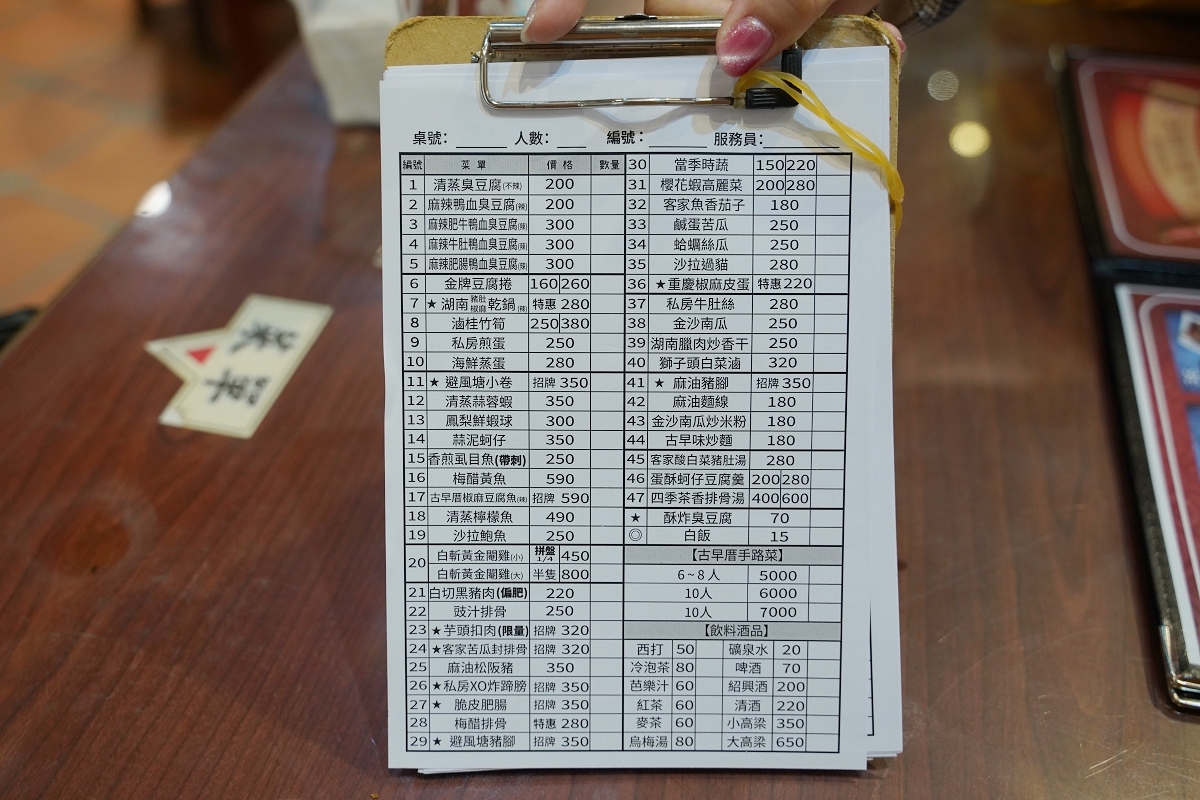 桌號： 人數： 編號： 服務員：
編號 菜單 價格 數量
1 清蒸臭豆腐(不辣) 200
2 麻辣鴨血臭豆腐(辣) 200
3 麻辣肥牛鴨血臭豆腐(辣) 300
4 麻辣牛肚鴨血臭豆腐(辣) 300
5 麻辣肥腸鴨血臭豆腐(辣) 300
6 金牌豆腐捲 160 260
7 ★ 湖南豬肚椒麻乾鍋(辣) 特惠 280
8 滷桂竹筍 250 380
9 私房煎蛋 250
10 海鮮蒸蛋 280
11 ★ 避風塘小卷 招牌 350
12 清蒸蒜蓉蝦 350
13 鳳梨鮮蝦球 300
14 蒜泥蚵仔 350
15 香煎虱目魚(帶刺) 250
16 梅醋黃魚 590
17 古早厝椒麻豆腐魚(辣) 招牌 590
18 清蒸檸檬魚 490
19 沙拉鮑魚 250
20 白斬黃金閹雞(小) 拼盤 1/4 450
白斬黃金閹雞(大) 半隻 800
21 白切黑豬肉(偏肥) 220
22 豉汁排骨 250
23 ★芋頭扣肉(限量) 招牌 320
24 ★客家苦瓜封排骨 招牌 320
25 麻油松阪豬 350
26 ★私房XO炸蹄膀 招牌 350
27 ★ 脆皮肥腸 招牌 350
28 梅醋排骨 特惠 280
29 ★ 避風塘豬腳 招牌 350
30 當季時蔬 150 220
31 櫻花蝦高麗菜 200 280
32 客家魚香茄子 180
33 鹹蛋苦瓜 250
34 蛤蠣絲瓜 250
35 沙拉過貓 280
36 ★重慶椒麻皮蛋 特惠 220
37 私房牛肚絲 280
38 金沙南瓜 250
39 湖南臘肉炒香干 250
40 獅子頭白菜滷 320
41 ★ 麻油豬腳 招牌 350
42 麻油麵線 180
43 金沙南瓜炒米粉 180
44 古早味炒麵 180
45 客家酸白菜豬肚湯 280
46 蛋酥蚵仔豆腐羹 200 280
47 四季茶香排骨湯 400 600
★ 酥炸臭豆腐 70
◎ 白飯 15
【古早厝手路菜】
6~8人 5000
10人 6000
10人 7000
【飲料酒品】
西打 50 礦泉水 20
冷泡茶 80 啤酒 70
芭樂汁 60 紹興酒 200
紅茶 60 清酒 220
麥茶 60 小高粱 350
烏梅湯 80 大高粱 650
菜單